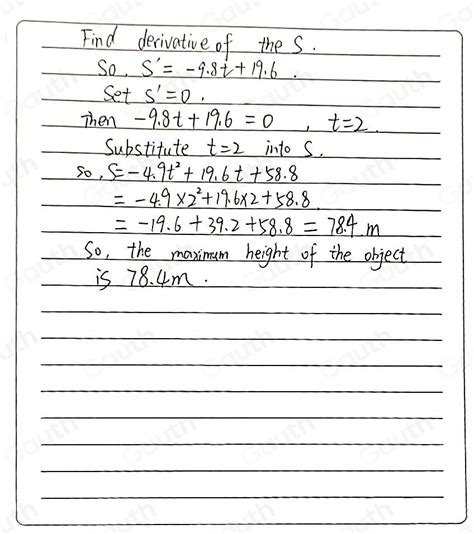 Find derivative of the S.
So, S' = -9.8t + 19.6.
Set S' = 0.
Then -9.8t + 19.6 = 0 , t=2.
Substitute t=2 into S.
so, S = -4.9t² + 19.6t + 58.8
= -4.9 × 2² + 19.6 × 2 + 58.8
= -19.6 + 39.2 + 58.8 = 78.4 m
So, the maximum height of the object
is 78.4m.